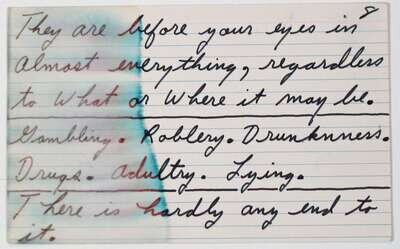 8
They are before your eyes in
almost everything, regardless
to what or where it may be.
Gambling. Robbery. Drunknness.
Drugs. Adultry. Lying.
There is hardly any end to
it.